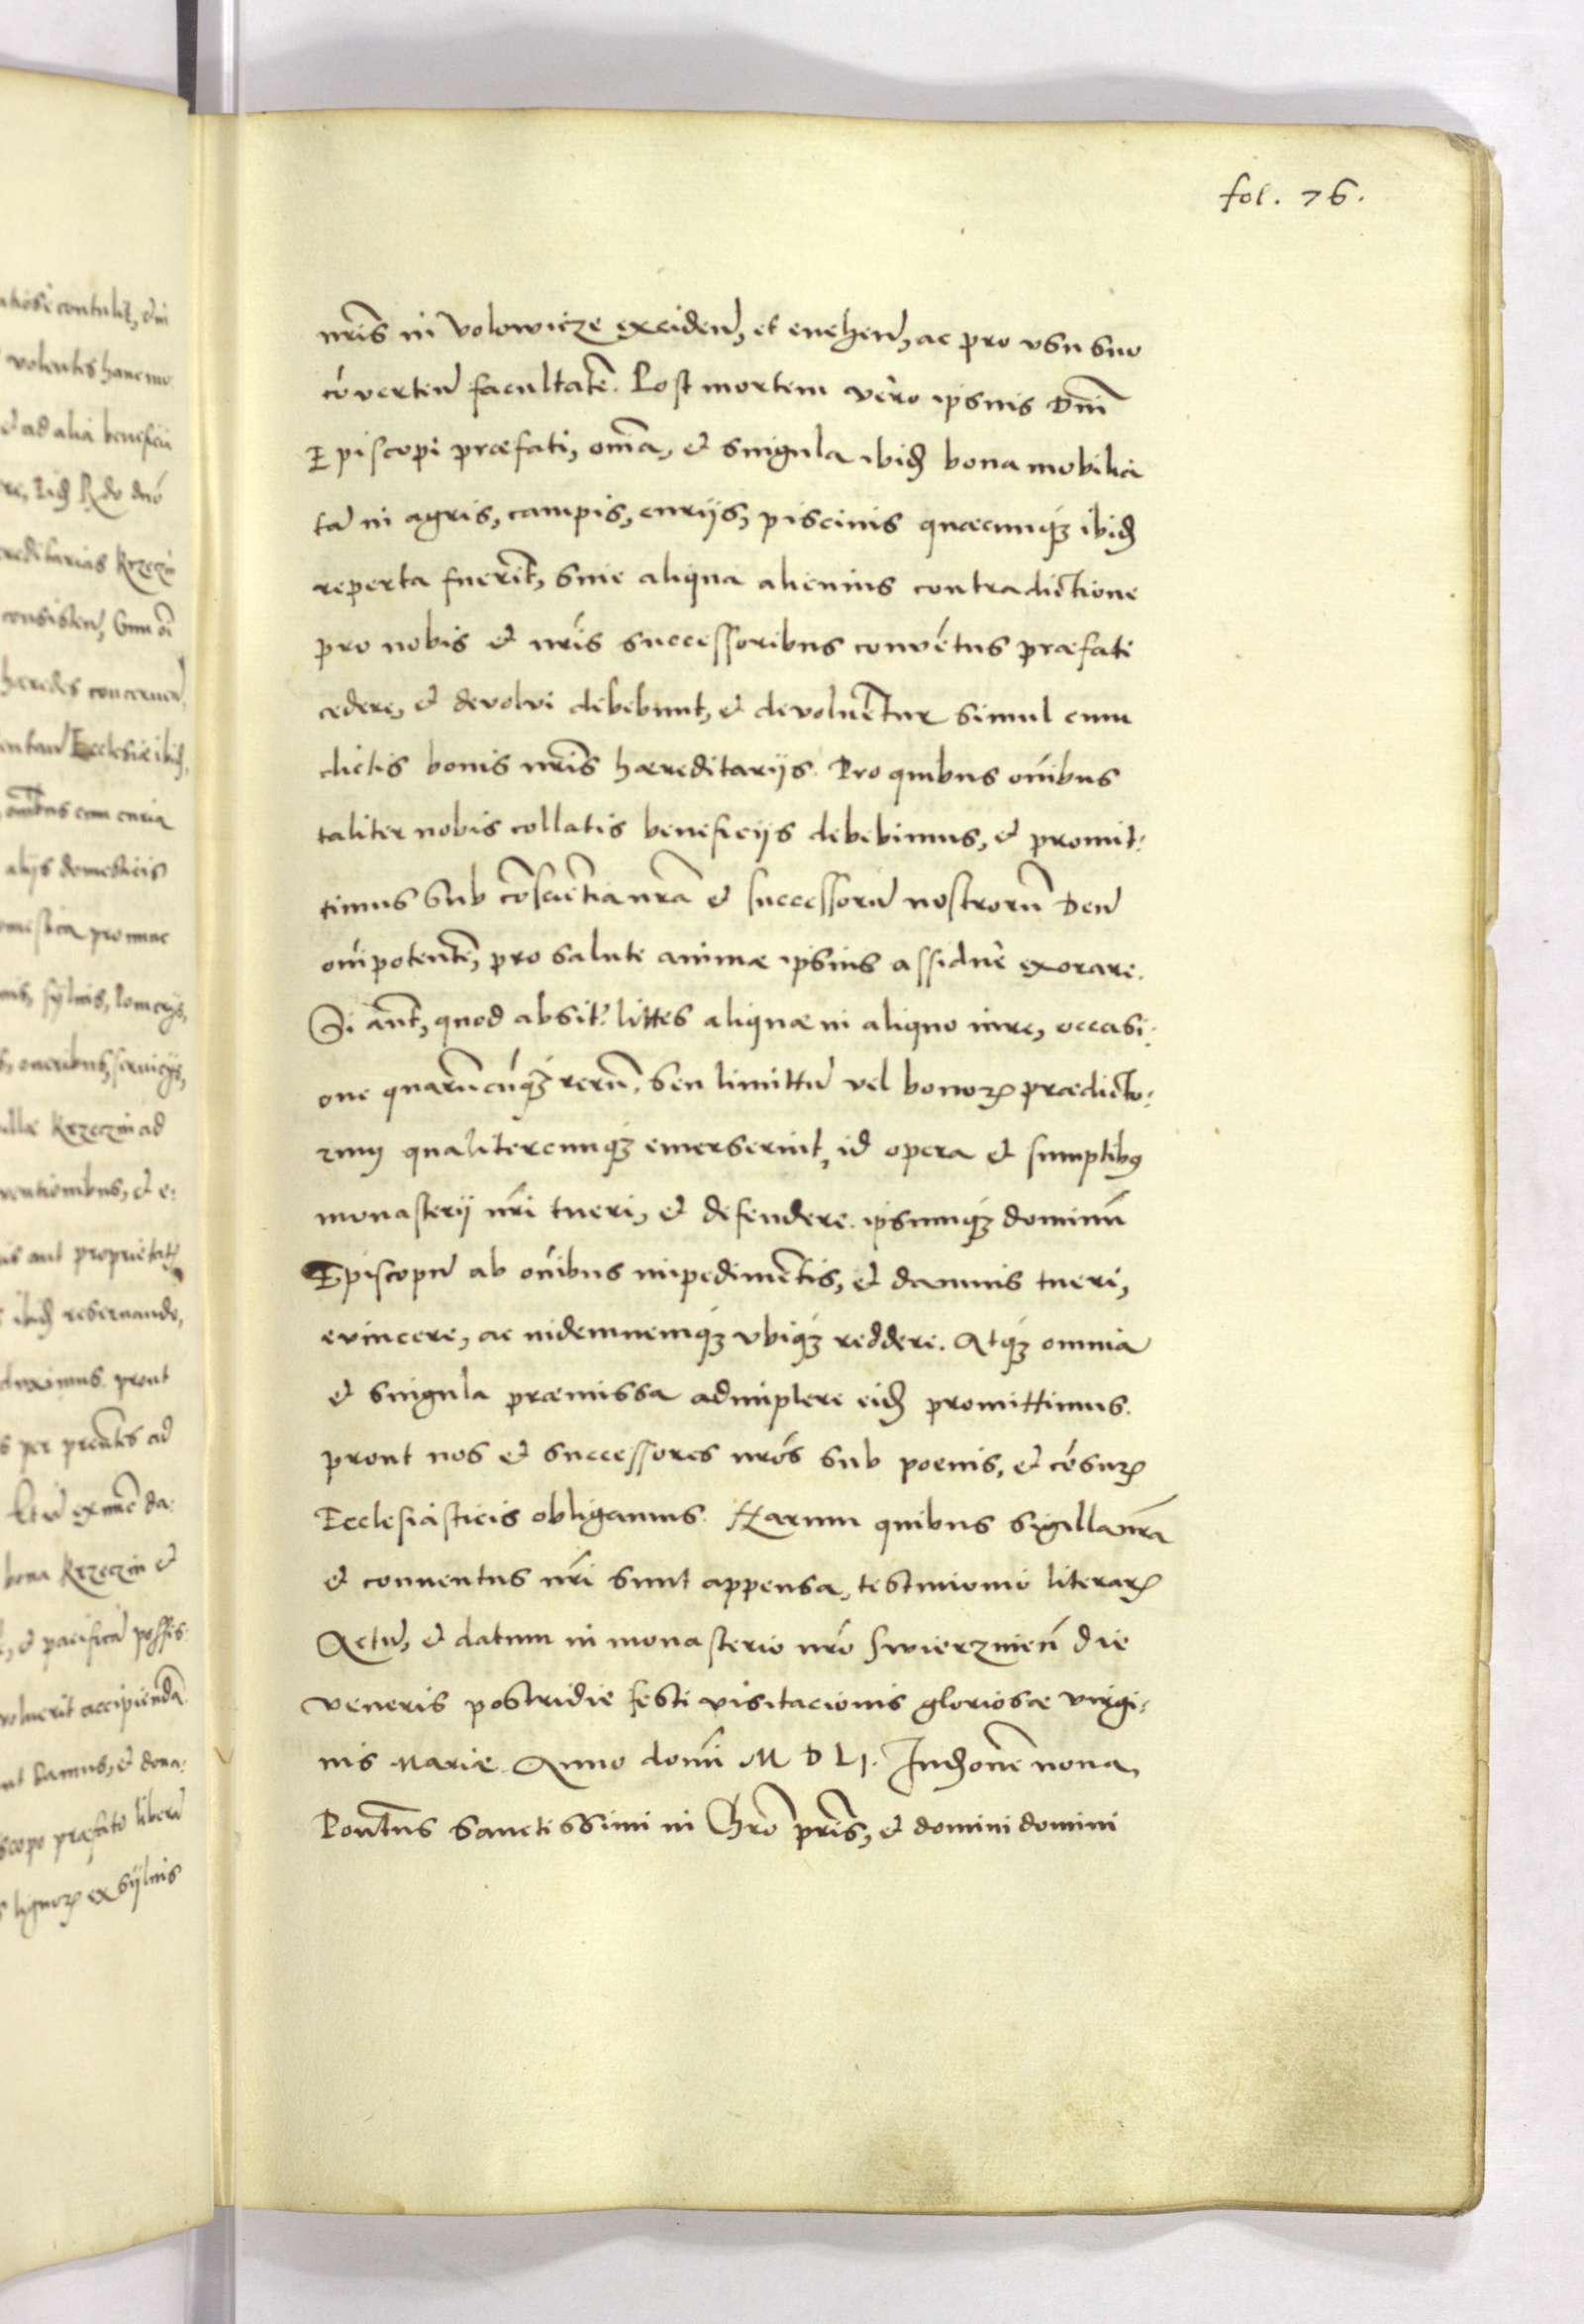 fol. 76.
nr̃is in Volowicze exciden̄, et evehen̄, ac pro usu suo
cōverten̄ facultatē. Post mortem vero ipsius Dni
Episcopi præfati, om̄a, et singula ibid̄ bona mobilia
tā in agris, campis, curijs, piscinis quæcunq́ꝫ ibid̄
reperta fuerīt, sine aliqua alicuius contradictione
pro nobis et nr̃is successoribus convētus præfati
cedere, et devolvi debebunt, et devoluētur simul cum
dictis bonis nr̃is hæreditarijs. Pro quibus om̄ibus
taliter nobis collatis beneficijs debebimus, et promit:
timus sub cōscientia nr̃a et successorū nostrorū Deū
om̄ipotentē, pro salute animæ ipsius assidue exorare.
Si aūt, quod absit: littes aliquæ in aliquo iure, occasi:
one quarūcūq́ꝫ rerū, seu limittū vel bonorꝝ prædicto:
rum qualitercunq́ꝫ emerserint, id opera et sumptibꝰ
monasterij nr̃i tueri, et defendere. ipsumq́ꝫ dominū
Episcopū ab om̄ibus impedimētis, et damnis tueri,
evincere, ac indemnemq́ꝫ ubiq́ꝫ reddere. Atq́ꝫ omnia
et singula præmissa adimplere eid̄ promittimus.
prout nos et successores nr̃os sub poenis, et cēsurꝭ
Ecclesiasticis obligamus. Harum quibus sigilla nr̃a
et conventus nr̃i sunt appensa, testimonio literarꝝ
Actū, et datum in monasterio nr̃o Swierznień die
veneris postridie festi visitacionis gloriosæ virgi:
nis Mariæ. Anno domī M D LI. Ind̄one nona,
Pont̄us Sanctissimi in Chr̄o pr̄is, et domini domini